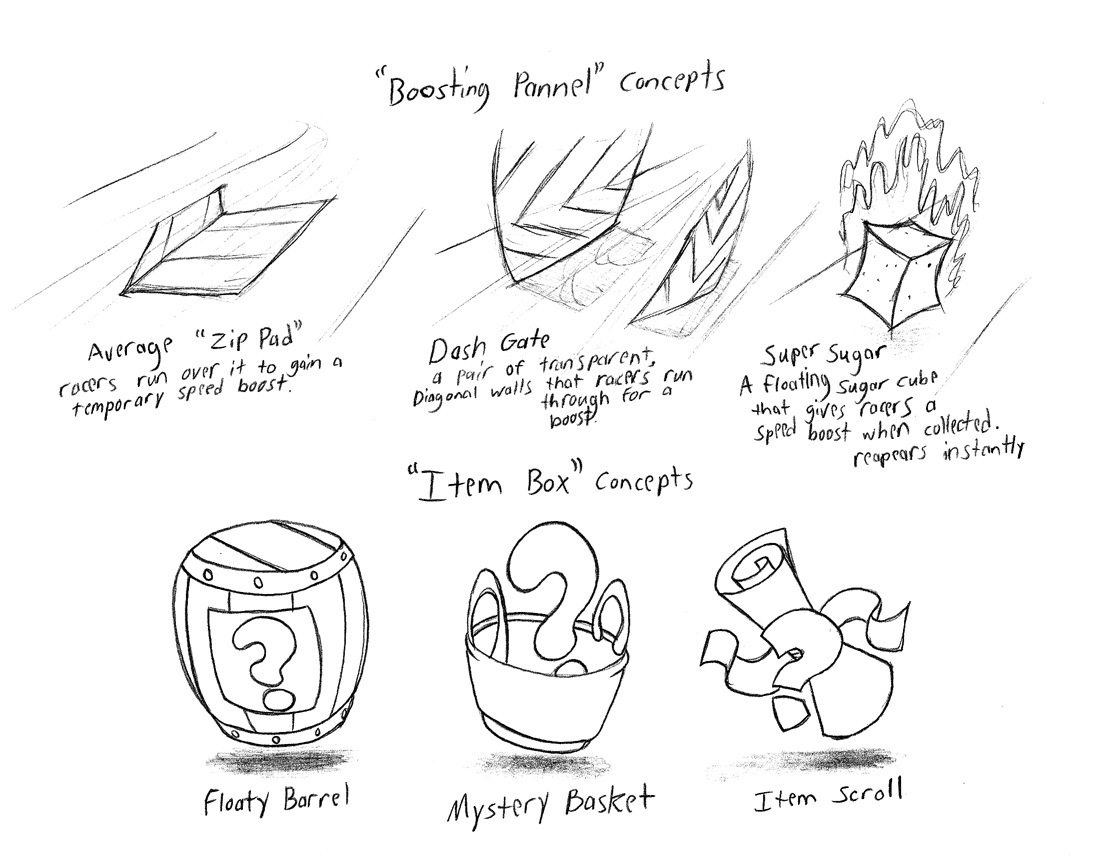 "Boosting Pannel" Concepts
Average "Zip Pad"
racers run over it to gain a
temporary speed boost.
Dash Gate
a pair of transparent,
Diagonal walls that racers run
through for a
boost.
Super Sugar
A floating sugar cube
that gives racers a
speed boost when collected.
reapears instantly
"Item Box" Concepts
?
?
?
Floaty Barrel
Mystery Basket
Item Scroll